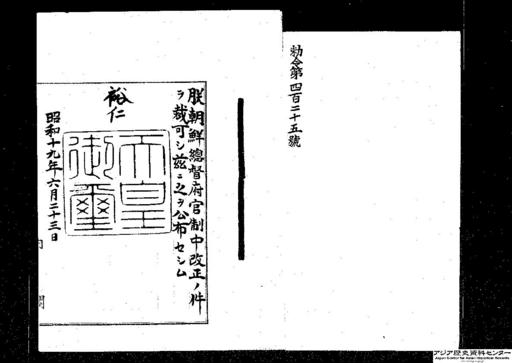 勅令第四百二十五號
朕朝鮮總督府官制中改正ノ件
ヲ裁可シ茲ニ之ヲ公布セシム
裕仁
天皇
御璽
昭和十九年六月二十三日
アジア歴史資料センター
Japan Center for Asian Historical Records